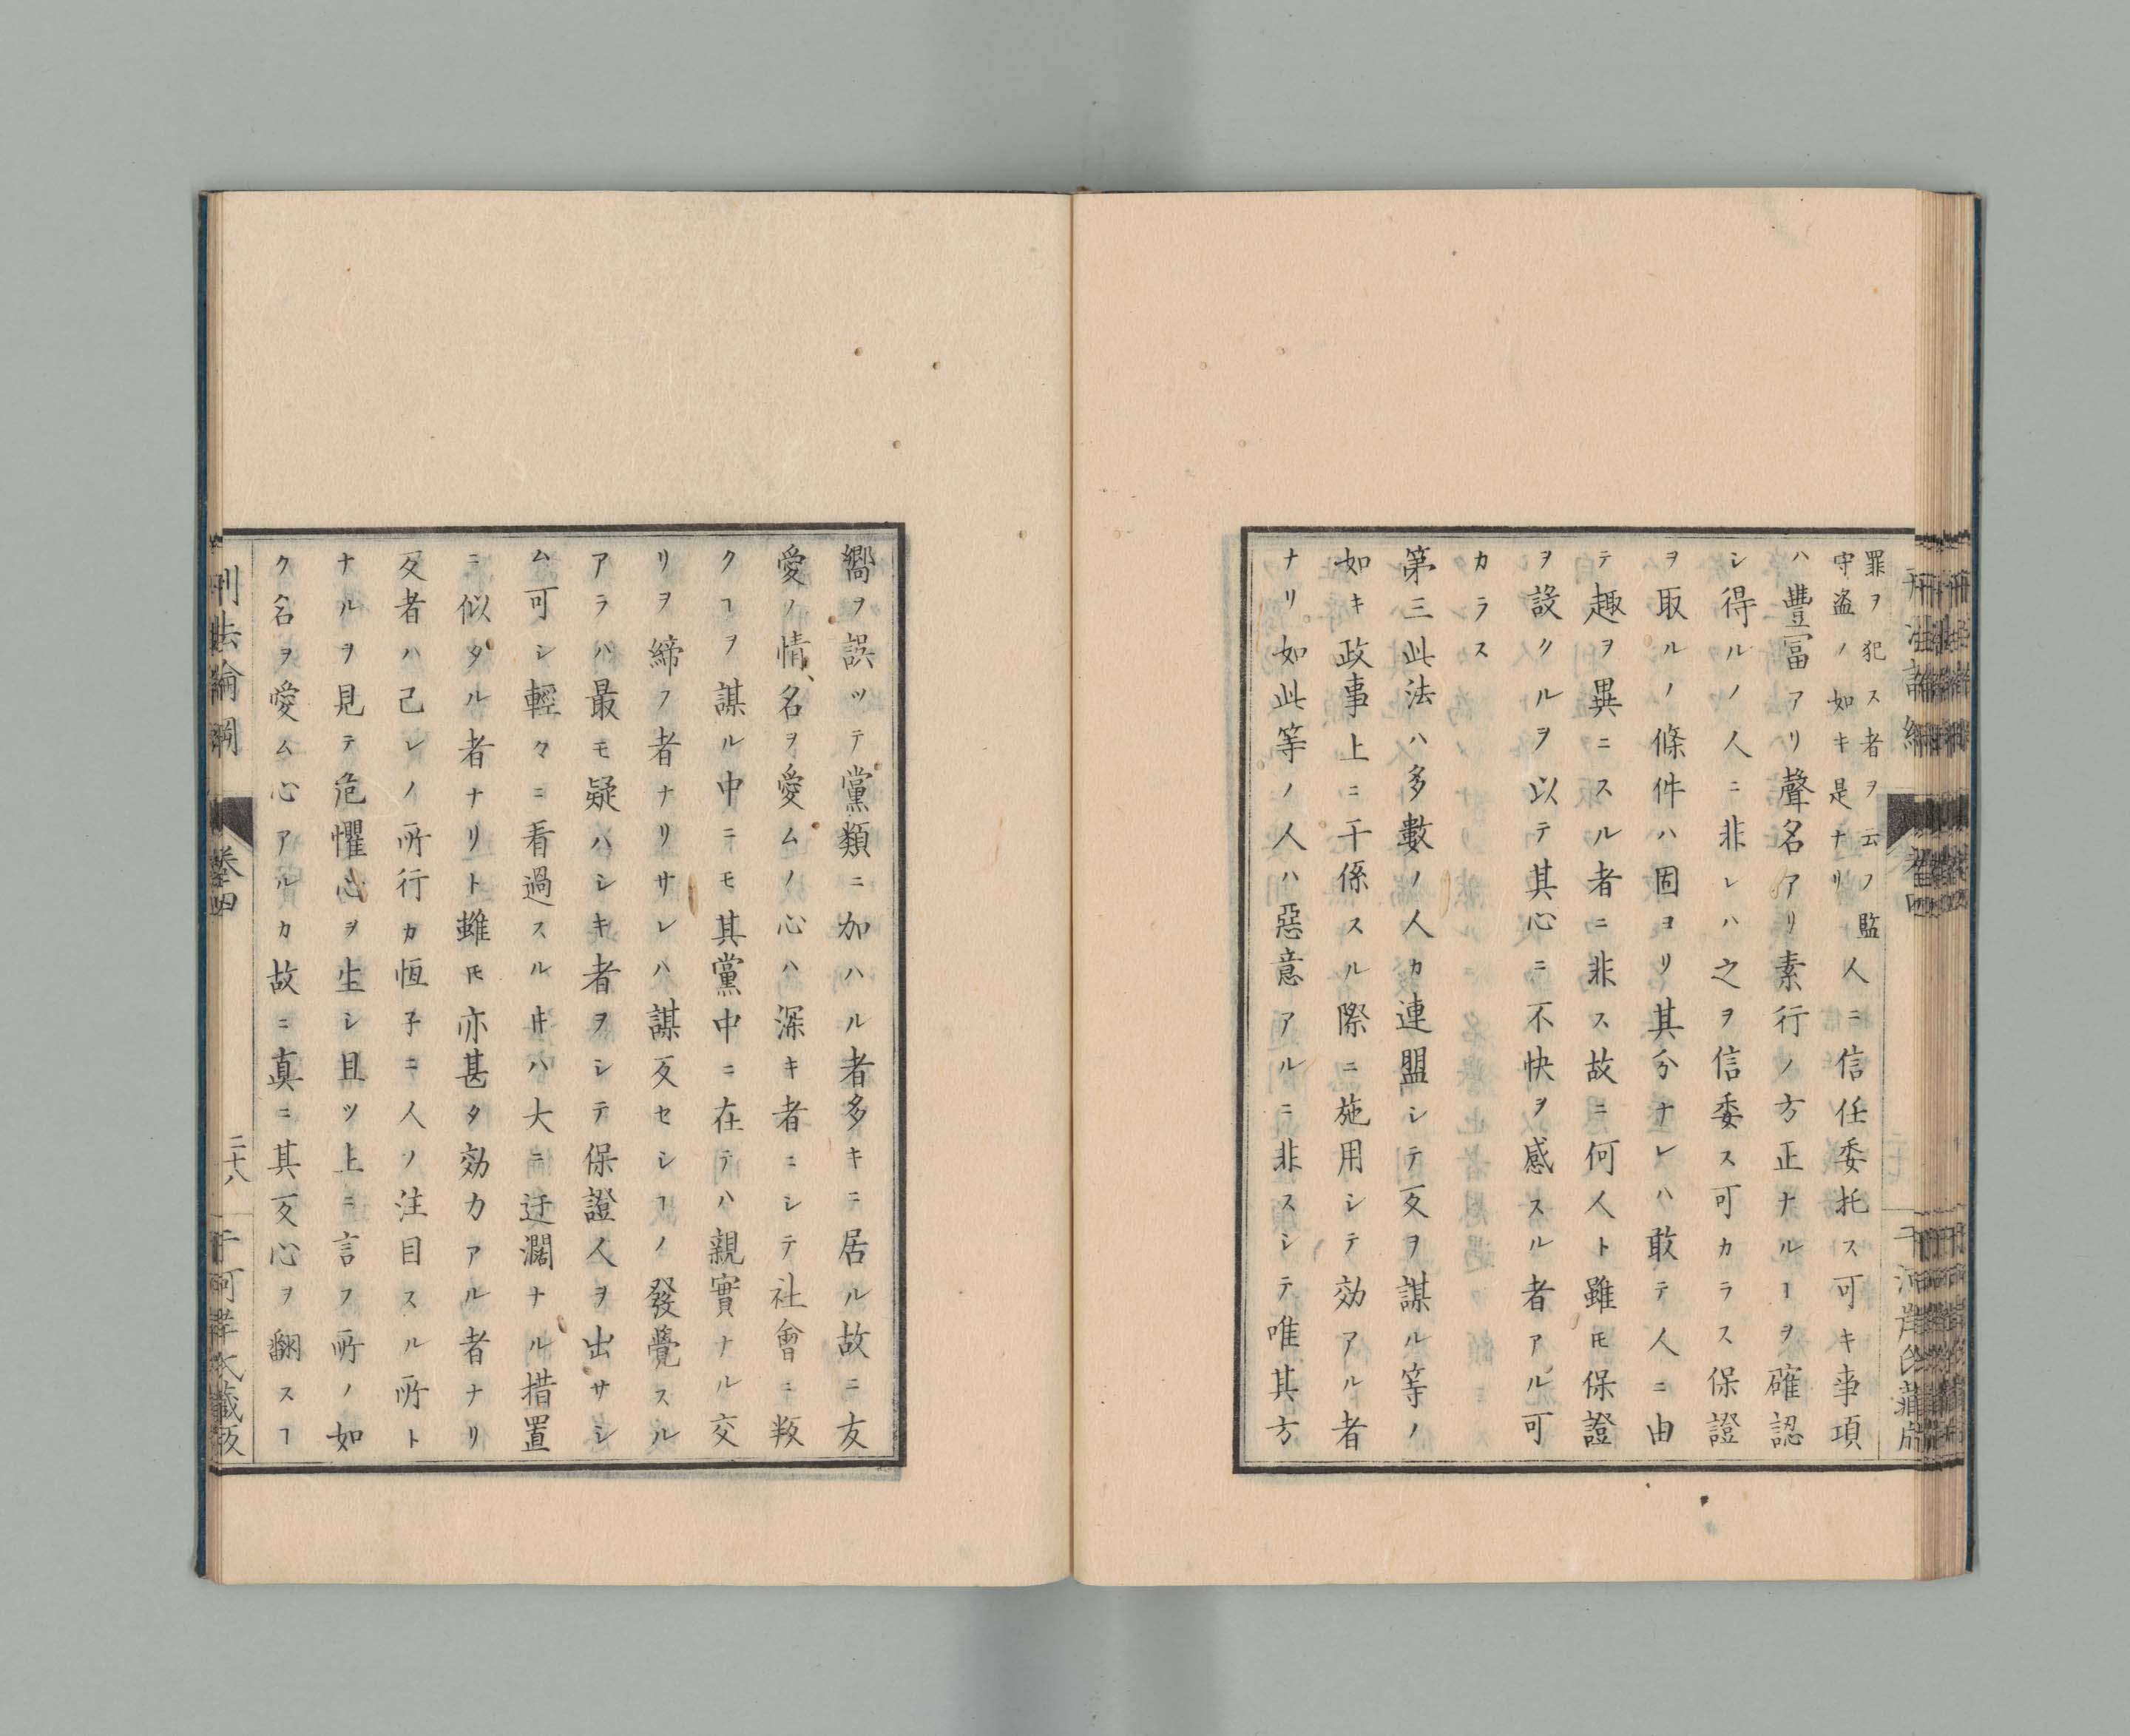 罪ヲ犯ス者ヲ云フ監
守盗ノ如キ是ナリ
人ニ信任委托ス可キ事項
ハ豐富アリ聲名アリ素行ノ方正ナルヿヲ確認
シ得ルノ人ニ非レハ之ヲ信委ス可カラス保證
ヲ取ルノ條件ハ固ヨリ其分ナレハ敢テ人ニ由
テ趣ヲ異ニスル者ニ非ス故ニ何人ト雖𪜈保證
ヲ設クルヲ以テ其心ニ不快ヲ感スル者アル可
カラス
第三此法ハ多數ノ人カ連盟シテ反ヲ謀ル等ノ
如キ政事上ニ干係スル際ニ施用シテ効アル者
ナリ如此等ノ人ハ惡意アルニ非スシテ唯其方
嚮ヲ誤ツテ黨類ニ加ハル者多キニ居ル故ニ友
愛ノ情、名ヲ愛ムノ心ハ深キ者ニシテ社會ニ叛
クヿヲ謀ル中ニモ其黨中ニ在テハ親實ナル交
リヲ締フ者ナリサレハ謀反セシヿノ發覺スル
アラハ最モ疑ハシキ者ヲシテ保證人ヲ出サシ
ム可シ輕々ニ看過スル𪜈ハ大ニ迂濶ナル措置
ニ似タル者ナリト雖𪜈亦甚タ効力アル者ナリ
反者ハ己レノ所行カ恒子ニ人ノ注目スル所ト
ナルヲ見テ危懼心ヲ生シ且ツ上ニ言フ所ノ如
ク名ヲ愛ム心アルカ故ニ真ニ其反心ヲ翻スヿ
刑法論綱
卷四
二十八
于河岸氏藏版